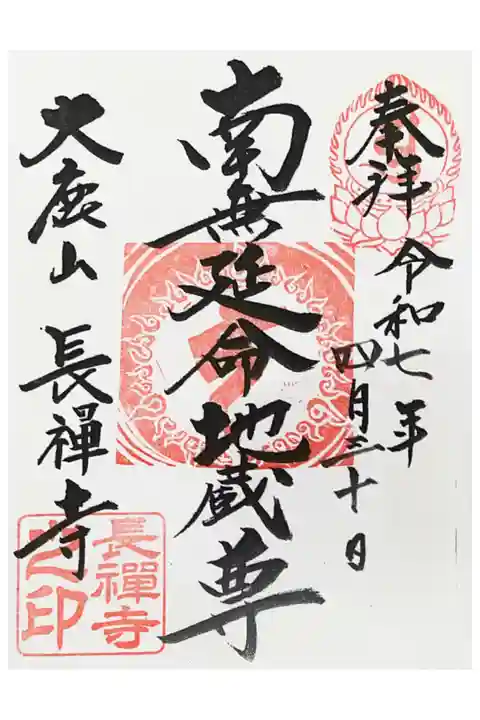 奉拝
令和七年
四月三十日
南無延命地蔵尊
大鹿山 長禪寺
長禪寺
之印